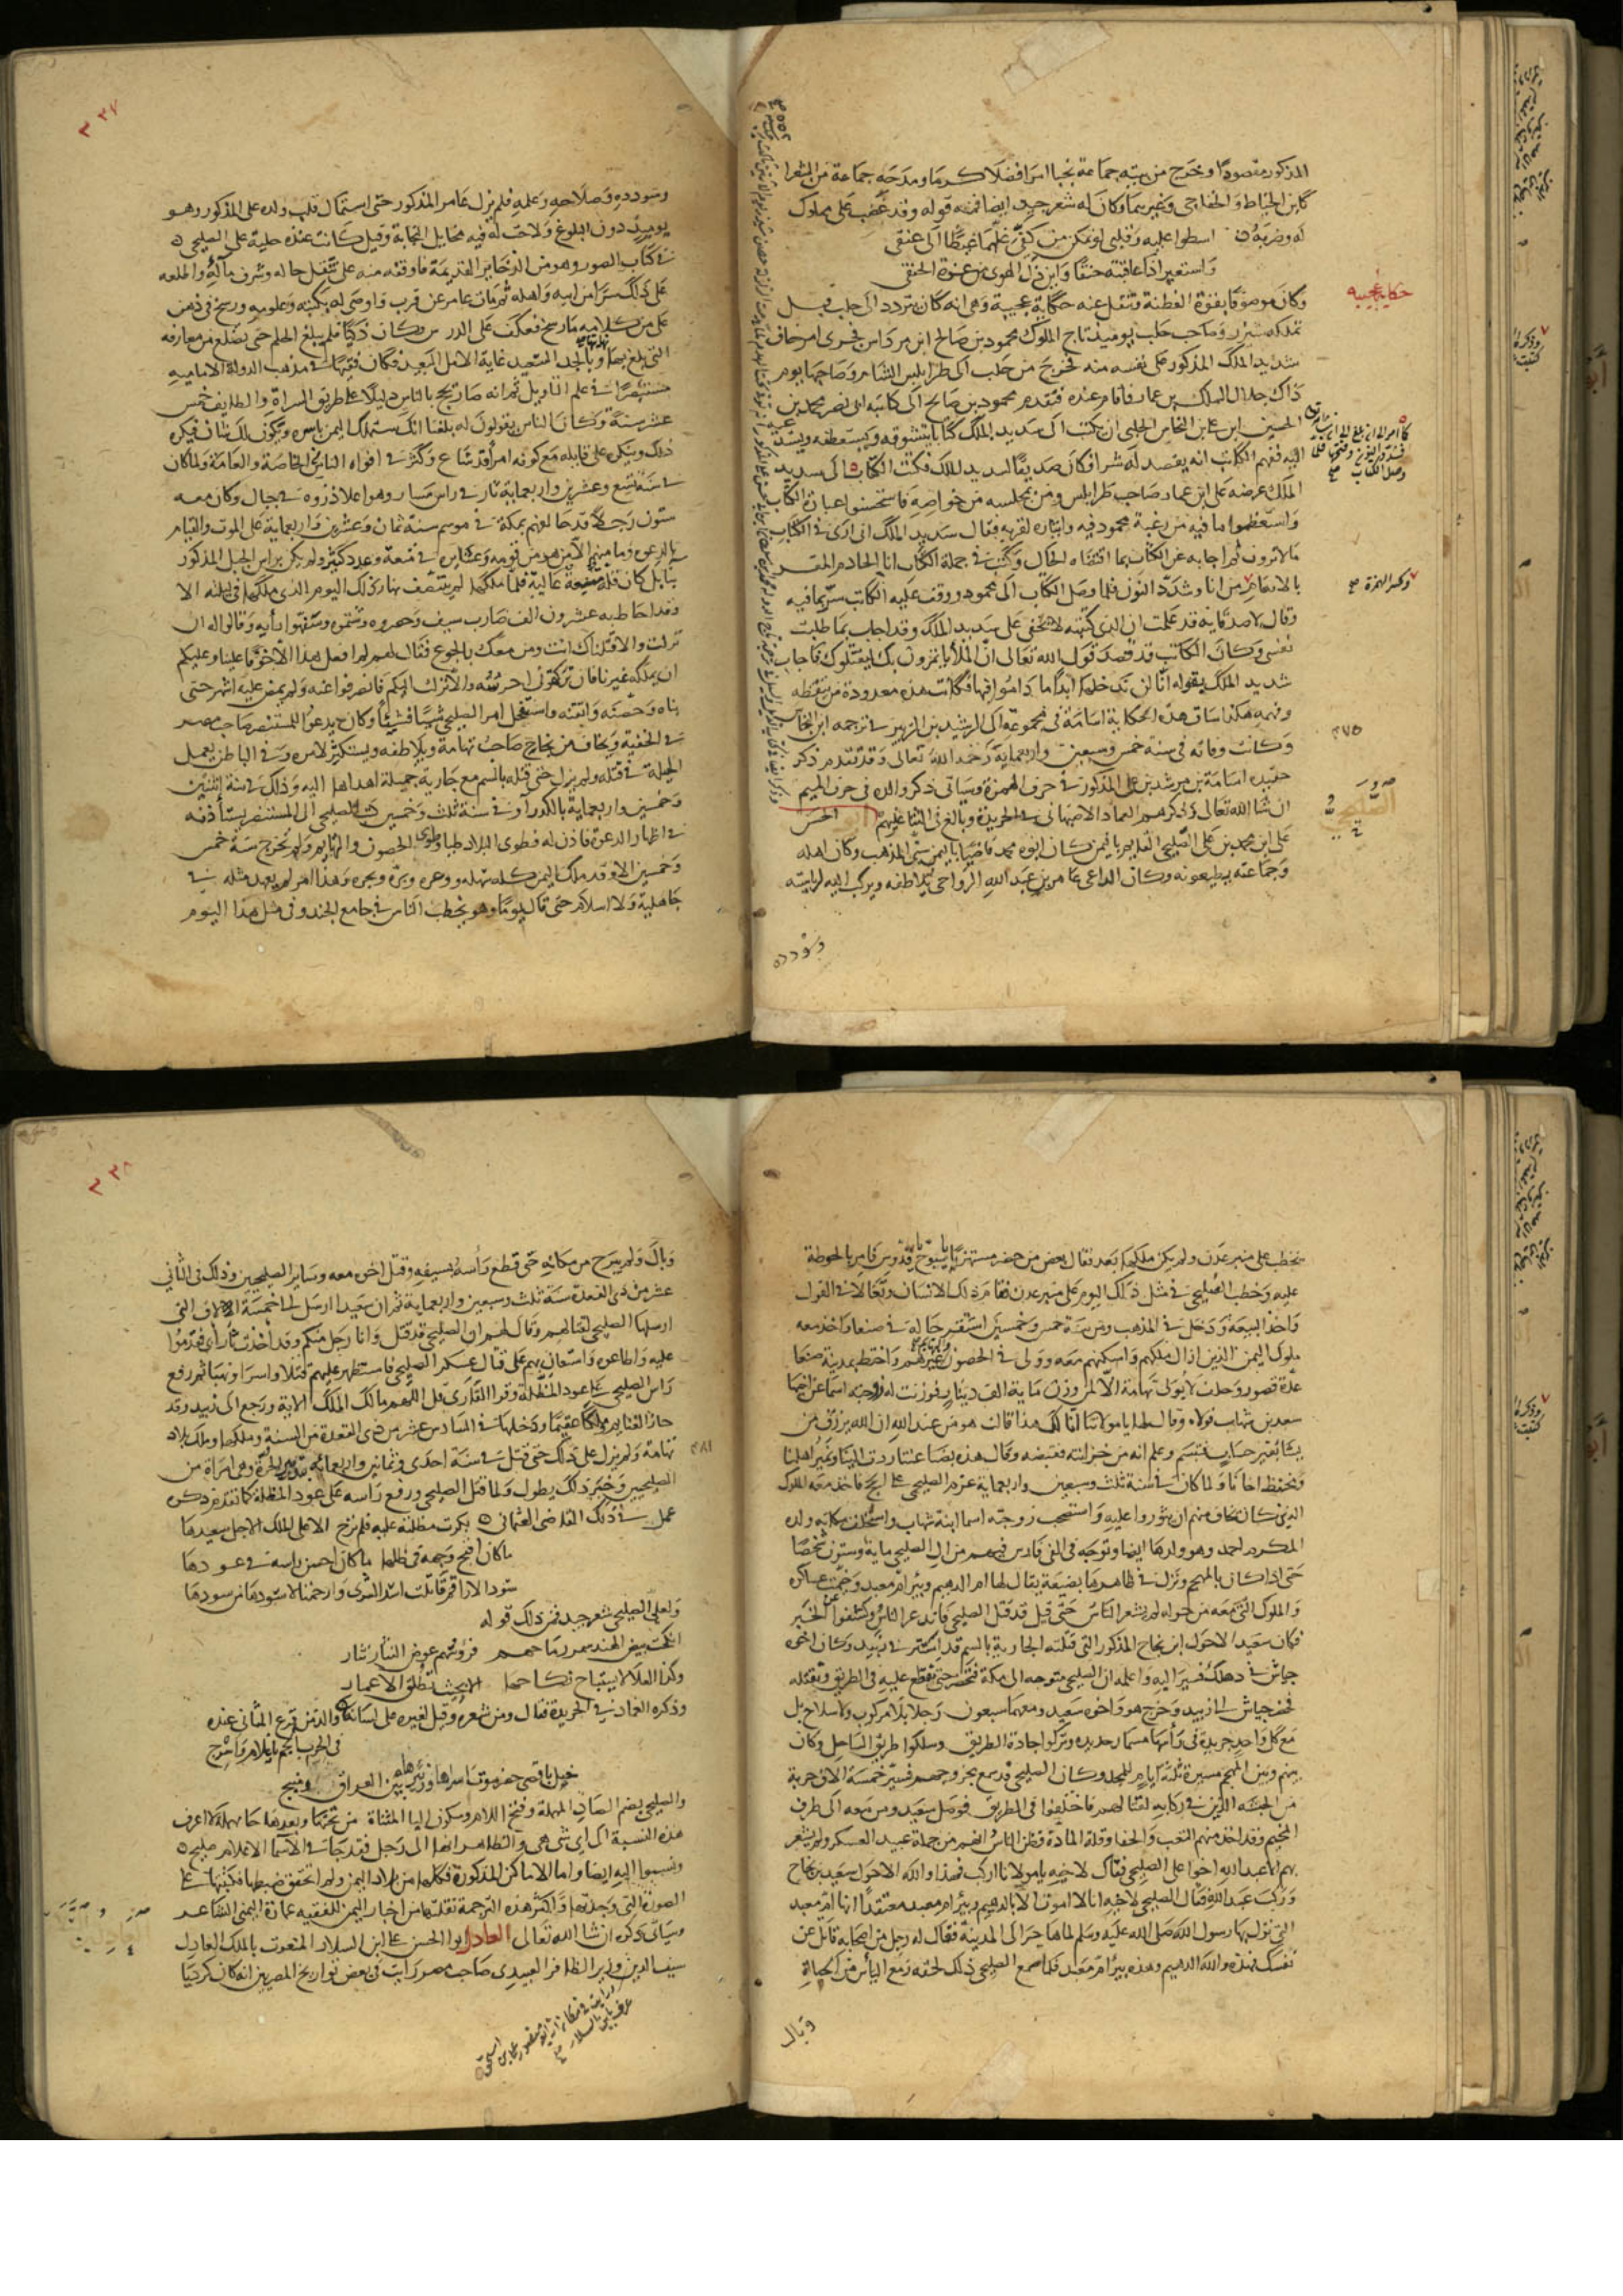 المذكور مقصودا وخرج من بيته جماعة نجبا امرا فضلا كرما ومدحه جماعة من الشعرا
كابن الخياط والخفاجي وغيرهما وكان له شعر جيد ايضا فمنه قوله وقد غضب على مملوك
له وضربه اسطوا عليه وقلبي لو تمكن من كفيّ غلهما غيظا الى عنقي
واستعير اذا عاقبته حنقا واين ذل الهوى من عزة الحنق
وكان موصوفا بقوة الفطنة وتنقل عنه حكاية عجيبة وهي انه كان يتردد الى حلب قبل
حكاية عجيبه
تملكه شيزر وصاحب حلب يوميذ تاج الملوك محمود بن صالح ابن مرداس فجرى امر خاف
سديد الملك المذكور على نفسه منه فخرج من حلب الى طرابلس الشام وصاحبها يوم
ذاك جلال الملك بن عمار فاقام عنده فتقدم محمود بن صالح الى كاتبه ابي نصر محمد بن
الحسين ابن علي ابن النحاس الحلبي ان يكتب الى سديد الملك كتابا يتشوقه ويستعطفه ويستدعيه
اليه ففهم الكاتب انه يقصد له شرا فكان صديقا لسديد الملك فكتب الكتاب الى سديد
الملك عرضه على ابن عمار صاحب طرابلس ومن بمجلسه من خواصه فاستحسنوا عبارة الكتاب
واستعظموا ما فيه من رغبة محمود فيه وايثاره لقربه فقال سديد الملك اني ارى في الكتاب
ما لا ترون ثم اجابه عن الكتاب بما اقتضاه الحال وكتب في جملة الكتاب انا الخادم المقر
بالانعام من انا وشدد النون فلما وصل الكتاب الى محمود ووقف عليه الكاتب سرّ بما فيه
وكسر الهمزة
وقال لاصدقايه قد علمت ان الذي كتبته لا يخفى على سديد الملك وقد اجاب بما طلبت
نفسي وكان الكاتب قد قصد قول الله تعالى ان الملأ يأتمرون بك ليقتلوك فاجاب
سديد الملك بقوله انا لن ندخلها ابدا ما داموا فيها فكانت هذه معدودة من تيقظه
وفهمه هكذا ساق هذه الحكاية اسامة في مجموعه الى الرشيد بن الزبير في ترجمه ابن النحاس
وكانت وفاته في سنة خمس وسبعين واربعماية رحمه الله تعالى وقد تقدم ذكر
٤٧٥
حفيده اسامة بن مرشد بن علي المذكور في حرف الهمزة وسياتي ذكر والده في حرف الميم
ان شا الله تعالى وذكرهم العماد الاصبهاني في الخريدة وبالغ في الثنا عليهم ابو الحسن
الصليحي
علي ابن محمد بن علي الصليحي القايم باليمن كان ابوه محمد قاضيا باليمن سني المذهب وكان اهله
وجماعته يطيعونه وكان الداعي عامر بن عبد الله الرواحي يلاطفه ويركب اليه لرياسته
وسودده
٣٣٧
وسودده وصلاحه وعلمه فلم يزل عامر المذكور حتى استمال قلب ولده علي المذكور وهو
يوميذ دون البلوغ ولاحت له فيه مخايل النجابة وقيل كانت عنده حلية علي الصليحي
في كتاب الصور وهو من الذخاير القديمة فاوقفه منه على تنقل حاله وشرف مآله واطلعه
على ذلك سرا من ابيه واهله ثم مات عامر عن قرب واوصى له بكتبه وعلومه ورسخ في ذهن
علي من كلامه ما رسخ فعكف على الدرس وكان ذكيا فلم يبلغ الحلم حتى تضلع من معارفه
التي بلغ بها وبالجد السعيد غاية الامل البعيد فكان فقيها في مذهب الدولة الامامية
مستبصرا في علم التاويل ثم انه صار يحج بالناس دليلا على طريق السراة والطايف خمس
عشر سنة وكان الناس يقولون له بلغنا انك ستملك اليمن باسره ويكون لك شان فيكره
ذلك وينكر على قايله مع كونه امرا قد شاع وكثر في افواه الناس الخاصة والعامة ولما كان
في سنة تسع وعشرين واربعماية ثار في راس مسار وهو اعلا ذروه في جبال وكان معه
ستون رجلا قد حالفهم بمكة في موسم سنة ثمان وعشرين واربعماية على الموت والقيام
بالدعوه وما منهم الا من هو من قومه وعشاير في منعة وعدد كثير ولم يكن براس الجبل المذكور
بنا بل كان قلة منيعة عالية فلما ملكها لم ينتصف نهار ذلك اليوم الذي ملكها في ليلته الا
وقد احاط به عشرون الف ضارب سيف وحصروه وشتموه وسفهوا رأيه وقالوا له ان
نزلت والا قتلناك انت ومن معك بالجوع فقال لهم لم افعل هذا الا خوفا علينا وعليكم
ان يملكه غيرنا فان تركتموني احرسه والا نزلت اليكم فانصرفوا عنه ولم يمض عليه اشهر حتى
بناه وحصنه واتقنه واستفحل امر الصليحي شيا فشيا وكان يدعو للمستنصر صاحب مصر
في الخفية ويخاف من نجاح صاحب تهامة ويلاطفه ويستكين لامره وفي الباطن يعمل
الحيلة في قتله ولم يزل حتى قتله بالسم مع جارية جميلة اهداها اليه وذلك في سنة اثنتين
وخمسين واربعماية بالكدرا وفي سنة ثلث وخمسين كتب الصليحي الى المستنصر يستأذنه
في اظهار الدعوة فاذن له فطوى البلاد طيا وطوى الحصون والتهايم ولم تخرج سنة خمس
وخمسين الا وقد ملك اليمن كله سهله ووعره وبره وبحره وهذا امر لم يعهد مثله في
جاهلية ولا اسلام حتى قال يوما وهو يخطب الناس في جامع الجند وفي مثل هذا اليوم
نخطب على منبر عدن ولم يكن ملكها بعد فقال بعض من حضر مستهزيا يا سبوح يا قدوس فامر بالحوطة
عليه وخطب الصليحي في مثل ذلك اليوم على منبر عدن فقام ذلك الانسان وتغالا في القول
واخذ البيعة ودخل في المذهب ومن سنة خمس وخمسين استقر حاله في صنعا واخذ معه
ملوك اليمن الذين ازال ملكهم واسكنهم معه وولى في الحصون غيرهم واختط بمدينة صنعا
عدة قصور وحلف لا يولي تهامة الا لمن وزن ماية الف دينار فوزنت له زوجته اسما عن اخيها
سعد بن شهاب فولاه وقال لها يا مولاتنا انى لك هذا قالت هو من عند الله ان الله يرزق من
يشا بغير حساب فتبسم وعلم انه من خزانته فقبضه وقال هذه بضاعتنا ردت الينا ونمير اهلنا
ونحفظ اخانا ولما كان في سنة ثلث وسبعين واربعماية عزم الصليحي على الحج فاخذ معه الملوك
الذين كان يخاف منهم ان يثوروا عليه واستصحب زوجته اسما ابنة شهاب واستخلف مكانه ولده
المكرم احمد وهو ولدها ايضا وتوجه في الفي فارس فيهم من ال الصليحي ماية وستون شخصا
حتى اذا كان بالمهجم ونزل في ظاهرها بضيعة يقال لها ام الدهيم وبير ام معبد وخيمت عساكره
والملوك التي معه من حوله لم يشعر الناس حتى قيل قد قتل الصليحي فانذعر الناس وكشفوا عن الخبر
فكان سعيد الاحول ابن نجاح المذكور التي قتلته الجارية بالسم قد استتر في زبيد وكان اخوه
جياش في دهلك فسير اليه واعلمه ان الصليحي متوجه الى مكة فتحضر حتى نقطع عليه في الطريق ونقتله
فحضر جياش الى زبيد وخرج هو واخوه سعيد ومعهما سبعون رجلا بلا مركوب ولا سلاح بل
مع كل واحد جريدة في رأسها مسمار حديد وتركوا جادة الطريق وسلكوا طريق الساحل وكان
بينهم وبين المهجم مسيرة ثلثة ايام للمجد وكان الصليحي قد سمع بخروجهم فسير خمسة الاف حربة
من الحبشه الذين في ركابه لقتالهم فاختلفوا في الطريق فوصل سعيد ومن معه الى طرف
المخيم وقد اخذ منهم التعب والحفا وقلة المادة فظن الناس انهم من جملة عبيد العسكر ولم يشعر
بهم الا عبد الله اخوا علي الصليحي فقال لاخيه يا مولانا اركب فهذا والله الاحول سعيد بن نجاح
وركب عبد الله فقال الصليحي لاخيه انا لا اموت الا بالدهيم وبير ام معبد معتقدا انها ام معبد
التي نزل بها رسول الله صلى الله عليه وسلم لما هاجر الى المدينة فقال له رجل من اصحابه قاتل عن
نفسك فهذه والله الدهيم وهذه بير ام معبد فلما سمع الصليحي ذلك لحقه زمع اليأس من الحياة
وبال
٣٣٨
وبال ولم يبرح من مكانه حتى قطع رأسه بسيفه وقتل اخوه معه وساير الصليحيين وذلك في الثاني
عشر من ذي القعدة سنة ثلث وسبعين واربعماية ثم ان سعيدا ارسل الى خمسة الالاف التي
ارسلها الصليحي لقتالهم وقال لهم ان الصليحي قد قتل وانا رجل منكم وقد اخذت ثار ابي فقدموا
عليه واطاعوه واستعان بهم على قتال عسكر الصليحي فاستظهر عليهم قتلا واسرا ونهبا ثم رفع
راس الصليحي على عود المظلة وقرا القاري قل اللهم مالك الملك الاية ورجع الى زبيد وقد
حاز الغنايم ملكا عقيما ودخلها في السادس عشر من ذي القعدة من السنة وملكها وملك بلاد
تهامة ولم يزل على ذلك حتى قتل في سنة احدى وثمانين واربعمائه بتدبير الحرة وهي امراة من
٤٨١
الصليحيين وخبر ذلك يطول ولما قتل الصليحي ورفع راسه على عود المظلة كما تقدم ذكره
عمل في ذلك القاضي العثماني بكرت مظلته عليه فلم ترح الا على الملك الاجل سعيدها
ما كان اقبح وجهه في ظلها ما كان احسن راسه في عودها
سود الاراقم قابلت اسد الشرى وارحمتا لاسودها من سودها
ولعلي الصليحي شعر جيد فمن ذلك قوله
انكحت بيض الهند سمر رماحهم فرؤسهم عوض النثار نثار
وكذا العلا لا يستباح نكاحها الا بحيث تطلق الاعمار
وذكره العماد في الخريدة فقال ومن شعره وقيل لغيره على لسانه والذ من قرع المثاني عنده
في الحرب الجم يا غلام واسرج
خيل باقصى حضرموت اسرها وزئيرها بين العراق ومنبج
والصليحي بضم الصاد المهملة وفتح اللام وسكون اليا المثناة من تحتها وبعدها حا مهملة لا اعرف
هذه النسبة الى اي شي هي والظاهر انها الى رجل فقد جا في الاسما الاعلام صليح
ونسبوا اليه ايضا واما الاماكن المذكورة فكلها من بلاد اليمن ولم اتحقق ضبطها فكتبتها على
الصورة التي وجدتها واكثر هذه الترجمة نقلتها من اخبار اليمن للفقيه عمارة اليمني الشاعر
وسياتي ذكره ان شا الله تعالى العادل ابوا الحسن علي ابن السلار المنعوت بالملك العادل
سيف الدين وزير الظافر العبيدي صاحب مصر رايت في بعض تواريخ المصريين انه كان كرديا